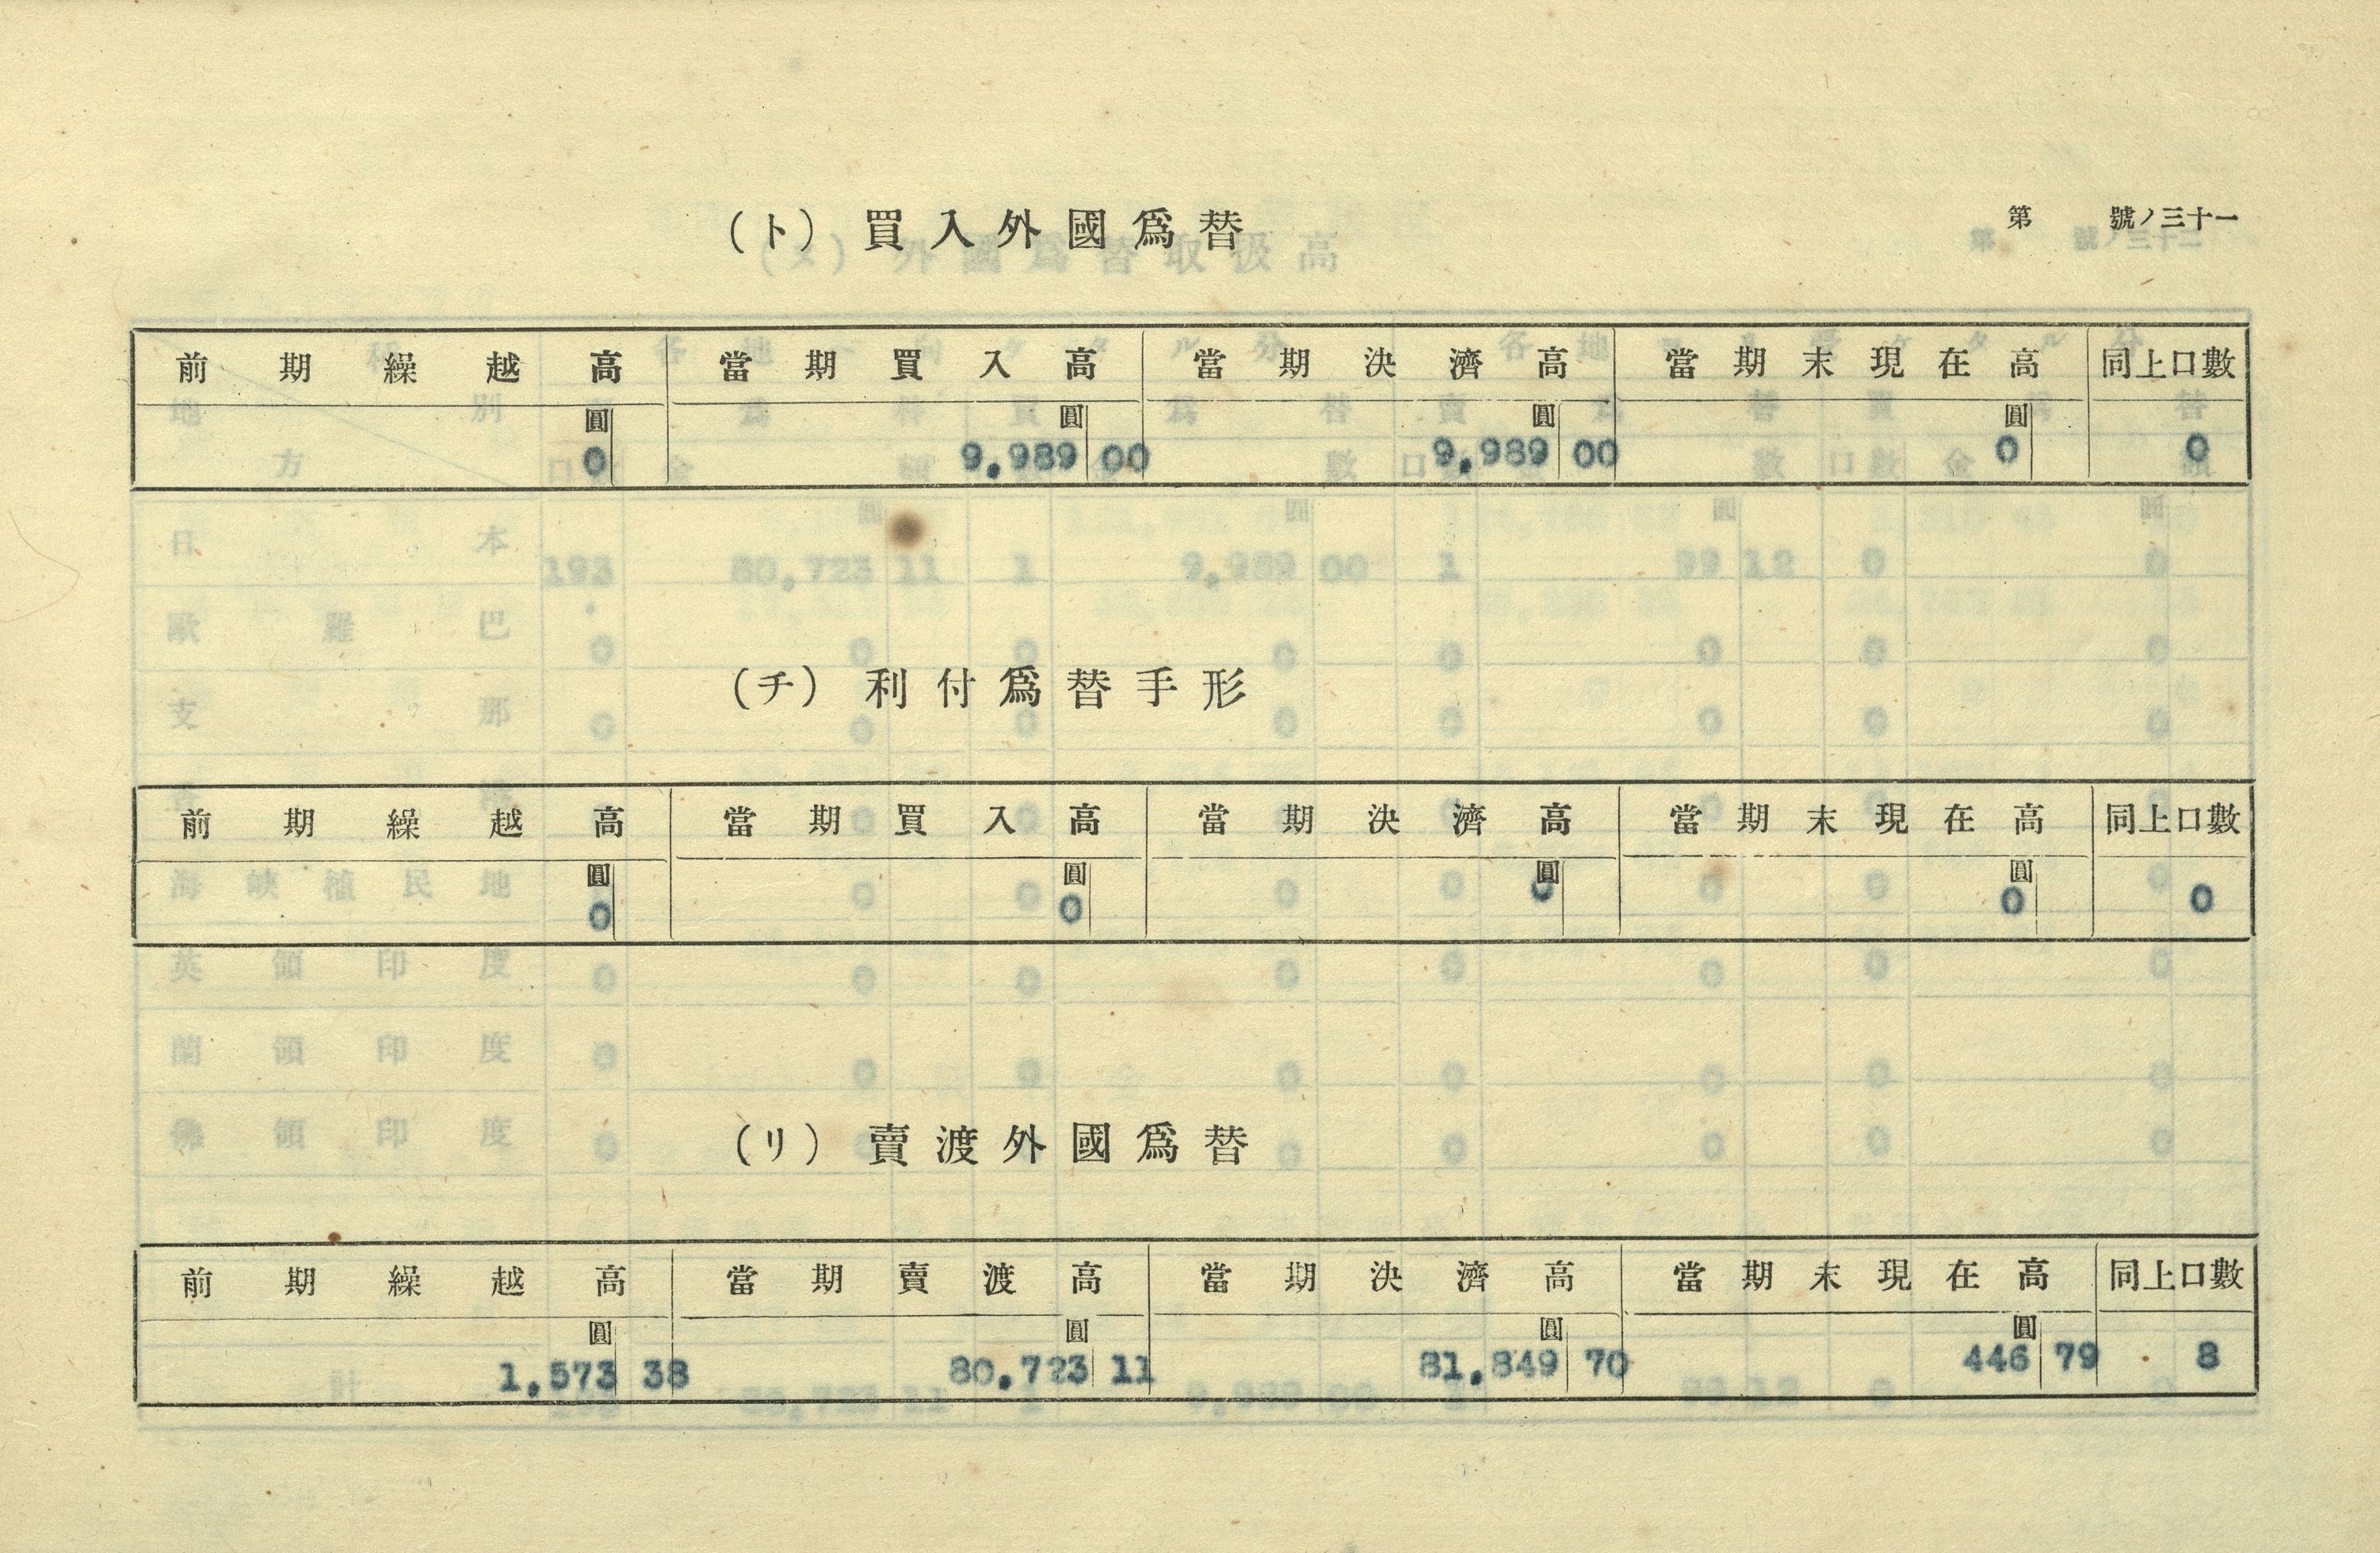 第　號ノ三十一
(ト) 買入外國爲替
前期繰越高 當期買入高 當期決濟高 當期末現在高 同上口數
圓 圓 圓 圓
0 9,989 00 9,989 00 0 0
(チ) 利付爲替手形
前期繰越高 當期買入高 當期決濟高 當期末現在高 同上口數
圓 圓 圓 圓
0 0 0 0 0
(リ) 賣渡外國爲替
前期繰越高 當期賣渡高 當期決濟高 當期末現在高 同上口數
圓 圓 圓 圓
1,573 38 80,723 11 81,849 70 446 79 8